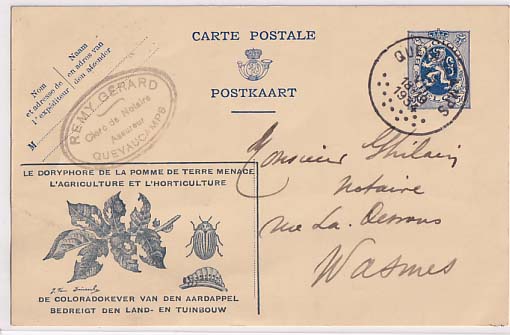 CARTE POSTALE
POSTKAART
Nom
et adresse de
l'expéditeur
Naam
en adres van
den afzender
M
REMY GÉRARD
Clerc de Notaire
Assureur
QUEVAUCAMPS
QUEV
1934
Monsieur Ghilain
Notaire
rue La. Dessous
Wasmes
LE DORYPHORE DE LA POMME DE TERRE MENACE
L'AGRICULTURE ET L'HORTICULTURE
DE COLORADOKEVER VAN DEN AARDAPPEL
BEDREIGT DEN LAND- EN TUINBOUW